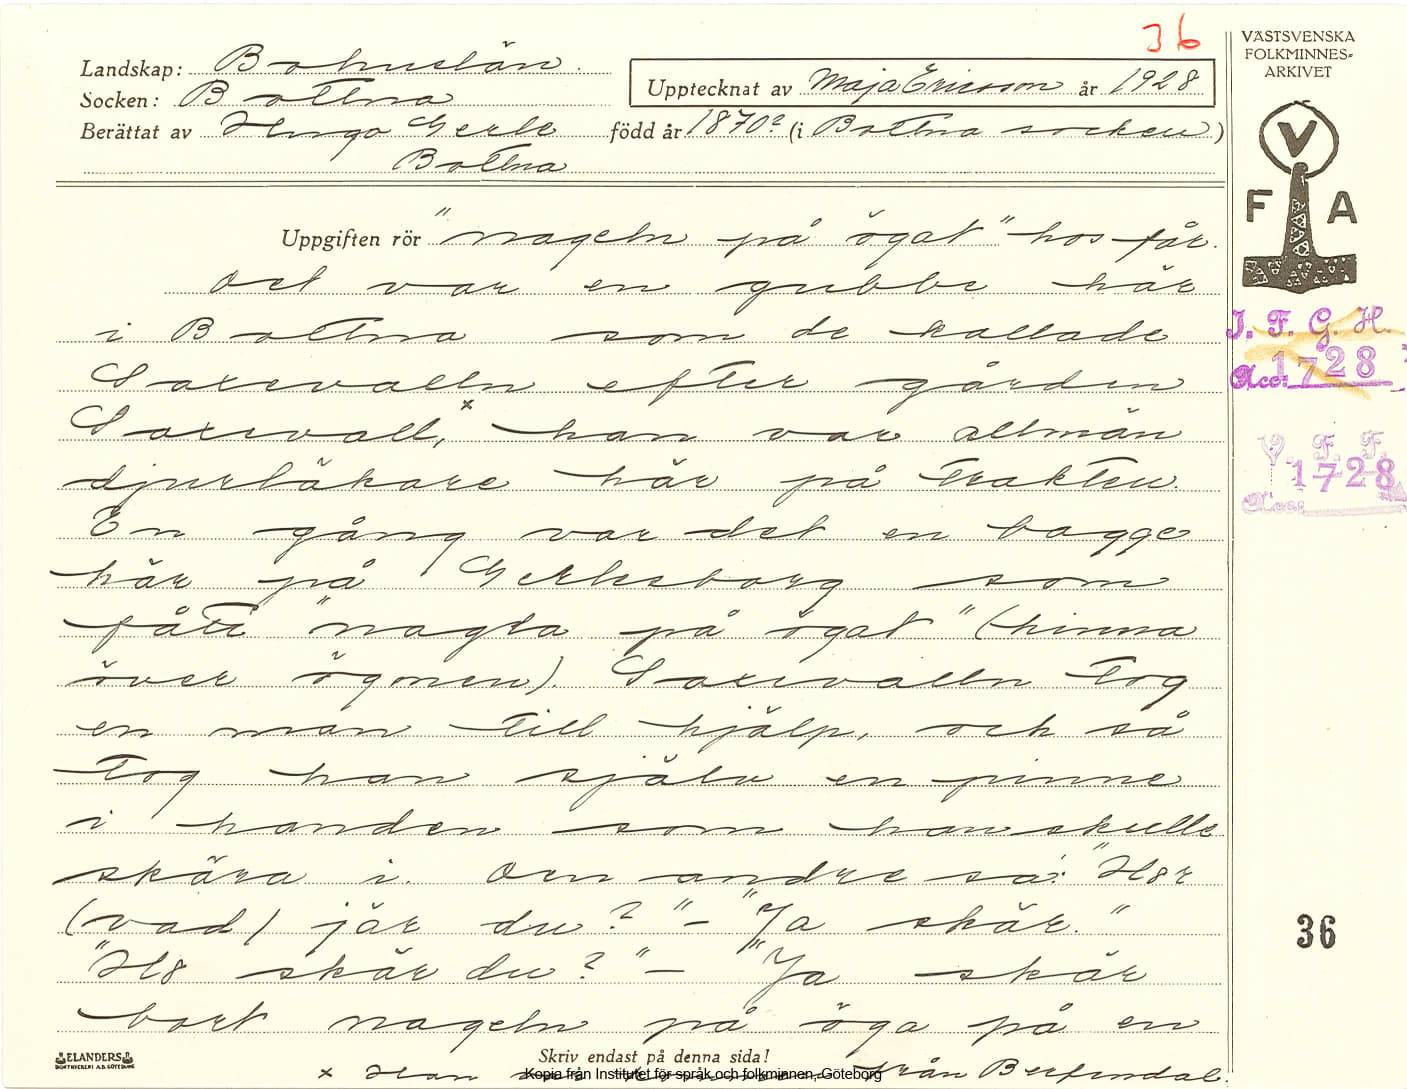 36
VÄSTSVENSKA
FOLKMINNES-
ARKIVET
Landskap: Bohuslän.
Socken: Bottna
Upptecknat av Maja Ericsson år 1928
Berättat av Hugo Gerle född år 1870? (i Bottna socken)
Bottna
V
F A
Uppgiften rör "nageln på ögat" hos får.
Det var en gubbe här
i Bottna som de kallade
Saxevalln efter gården
Saxevall,x han var allmän
djurläkare här på trakten.
En gång var det en bagge
här på Gerlesborg som
fått "nagla på ögat" (hinna
över ögonen). Saxevalln tog
en man till hjälp, och så
tog han själv en pinne
i handen som han skulle
skära i. Den andre sa: "Ho
(vad) jär du?" – "Ja skär."
"Ho skär du?" – "Ja skär
bort nageln på öga på en
I. F. G. H.
Acc: 1728
V. F. F.
Acc: 1728
36
ELANDERS
BOKTRYCKERI A.B. GÖTEBORG
Skriv endast på denna sida!
x Han från Berfendal.
Kopia från Institutet för språk och folkminnen, Göteborg